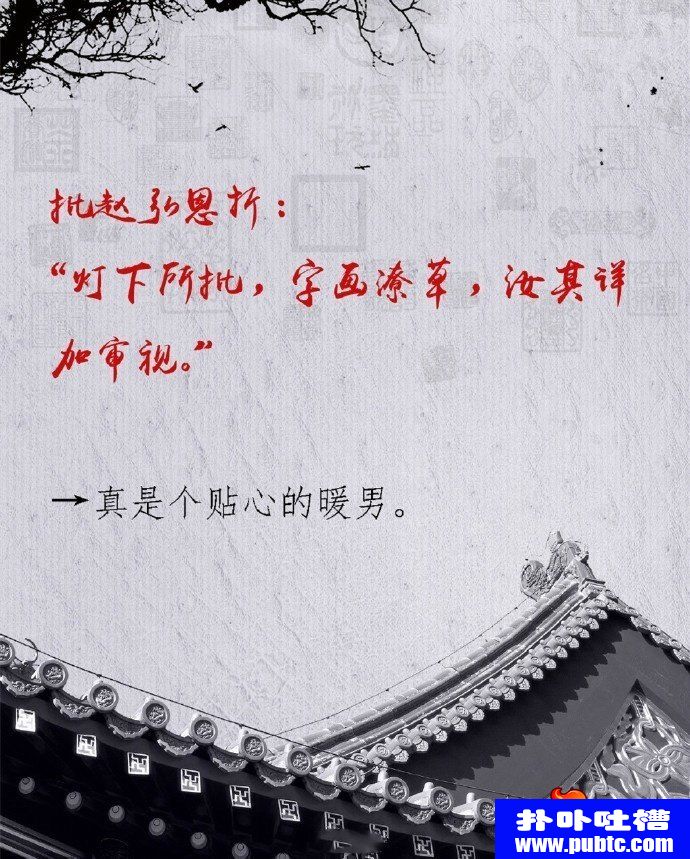 批赵弘恩折：
“灯下所批，字画潦草，汝其详
加审视。”
→真是个贴心的暖男。
扑卟吐槽
www.pubtc.com